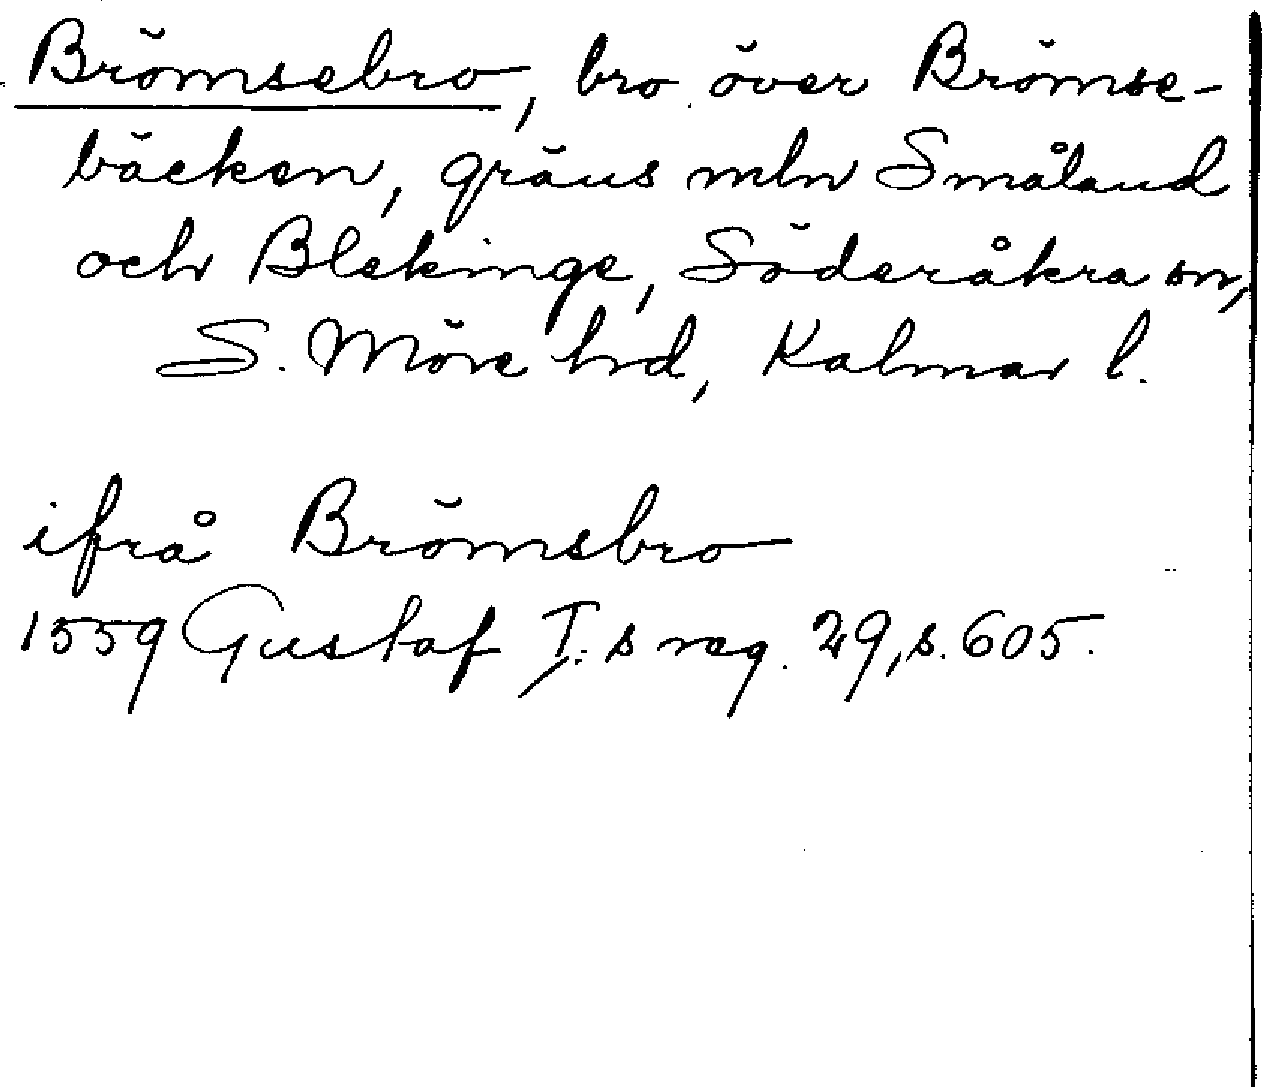 Brömsebro, bro över Brömse-
bäcken, gräns mln Småland
och Blekinge, Söderåkra sn,
S. Möre hrd, Kalmar l.
ifrå Brömsbro
1559 Gustaf I:s reg. 29, s. 605.